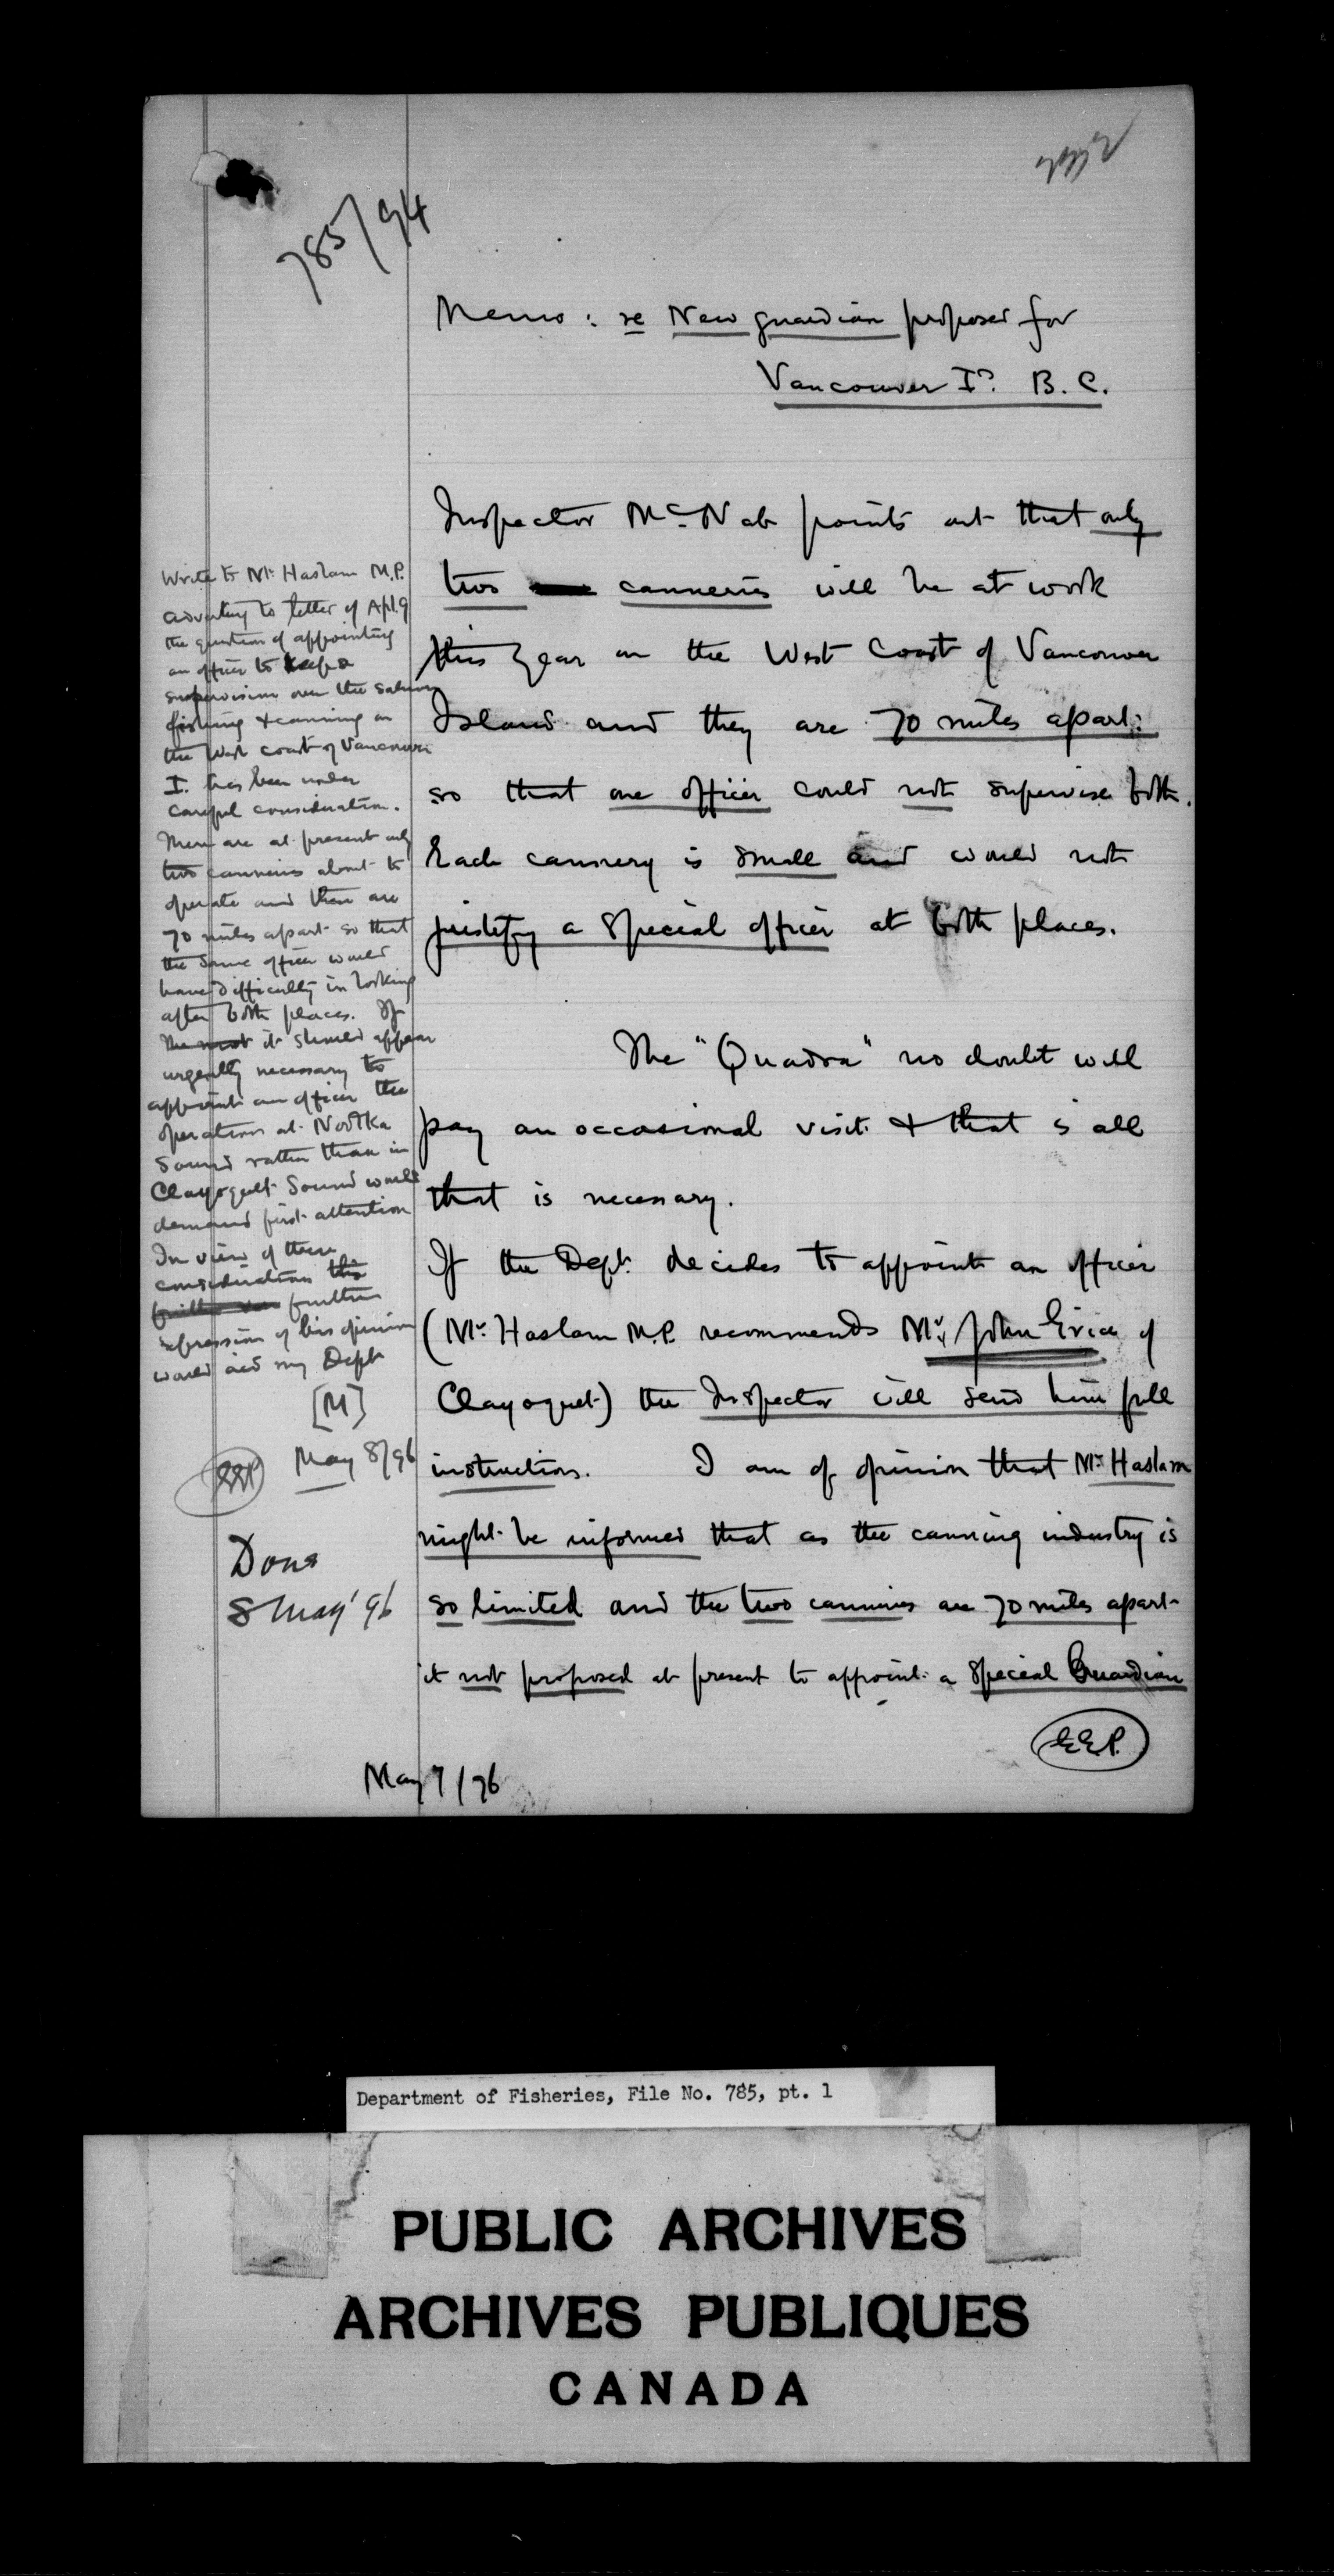 785/94
Memo: re New guardian proposed for
Vancouver Id. B.C.
Inspector McNab points out that only
two canneries will be at work
this year on the West Coast of Vancouver
Island and they are 70 miles apart:
so that one officer could not supervise both.
Each cannery is small and would not
justify a special officer at both places.
The "Quadra" no doubt will
pay an occasional visit & that is all
that is necessary.
If the Dept. decides to appoint an officer
(Mr. Haslam M.P. recommends Mr. John of
Clayoquot) the Inspector will send him full
instructions. I am of opinion that Mr. Haslam
might be informed that as the canning industry is
so limited and the two canneries are 70 miles apart
it not proposed at present to appoint a special Guardian
E.E.P.
May 7/96
Write to Mr. Haslam M.P.
adverting to letter of Apl. 9
the question of appointing
an officer to keep a
supervision over the salmon
fishing & canning on
the West coast of Vancouver
I. has been under
careful consideration.
There are at present only
two canneries about to
operate and these are
70 miles apart so that
the same officer would
have difficulty in looking
after both places. If
it should appear
urgently necessary to
appoint an officer the
operations at Nootka
Sound rather than in
Clayoquot Sound would
demand first attention
In view of these
considerations
further
expression of his opinion
would aid my Dept
[M]
May 8/96
EEP
Done
8 May '96
Department of Fisheries, File No. 785, pt. 1
PUBLIC ARCHIVES
ARCHIVES PUBLIQUES
CANADA